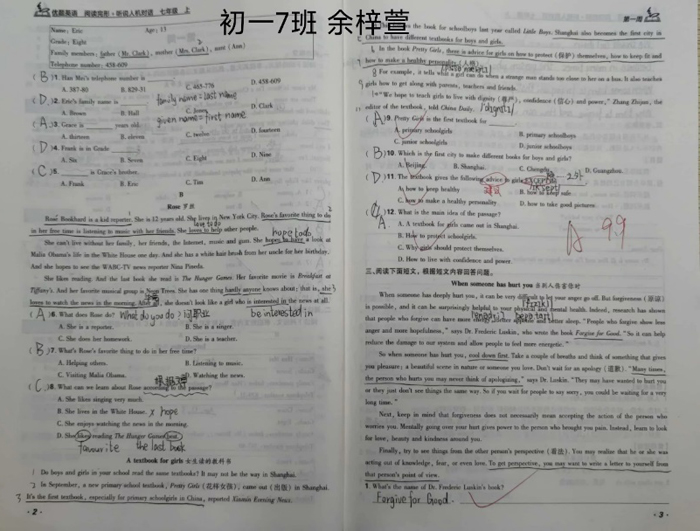 初一7班 余梓萱
优翼英语 阅读完形·听说人机对话 七年级 上
Name: Eric Age: 13
Grade: Eight
Family members: father (Mr. Clark), mother (Mrs. Clark), aunt (Ann)
Telephone number: 458-609
(B)11. Han Mei's telephone number is
A. 387-80 B. 829-31 C. 465-776 D. 458-609
(D)12. Eric's family name is family name = last name
A. Brown B. Hall C. Jones D. Clark
given name = first name
(A)13. Grace is years old.
A. thirteen B. eleven C. twelve D. fourteen
(D)14. Frank is in Grade
A. Six B. Seven C. Eight D. Nine
(C)15. is Grace's brother.
A. Frank B. Eric C. Tim D. Ann
B
Rose 罗丝
Rose Bookhard is a kid reporter. She is 12 years old. She lives in New York City. Rose's favorite thing to do
in her free time is listening to music with her friends. She loves to help other people.
love to do
hope to do
She can't live without her family, her friends, the Internet, music and gum. She hopes to have a look at
Malia Obama's life in the White House one day. And she has a white hair brush from her uncle for her birthday.
And she hopes to see the WABC-TV news reporter Nina Pineda.
She likes reading. And the last book she read is The Hunger Games. Her favorite movie is Breakfast at
Tiffany's. And her favorite musical group is Neon Trees. She has one thing hardly anyone knows about; that is, she
loves to watch the news in the morning. And she doesn't look like a girl who is interested in the news at all.
be interested in
(A)6. What does Rose do? What do you do? 问职业
A. She is a reporter. B. She is a singer.
C. She does her homework. D. She is a teacher.
(B)7. What's Rose's favorite thing to do in her free time?
A. Helping others. B. Listening to music.
C. Visiting Malia Obama. D. Watching the news.
(C)8. What can we learn about Rose according to the passage?
A. She likes singing very much.
B. She lives in the White House. x hope
C. She enjoys watching the news in the morning.
D. She likes reading The Hunger Games best.
Favourite the last book
A textbook for girls 女生读的教科书
1 Do boys and girls in your school read the same textbooks? It may not be the way in Shanghai.
2 In September, a new primary school textbook, Pretty Girls (《花样女孩》), came out (出版) in Shanghai.
3 It's the first textbook, especially for primary schoolgirls in China, reported Xinmin Evening News.
·2·
第一周
the book for schoolboys last year called Little Boys. Shanghai also becomes the first city in
China to have different textbooks for boys and girls.
In the book Pretty Girls, there is advice for girls on how to protect (保护) themselves, how to keep fit and
how to make a healthy personality (人格).
For example, it tells what a girl can do when a strange man stands too close to her on a bus. It also teaches
girls how to get along with parents, teachers and friends.
"We hope to teach girls to live with dignity (尊严), confidence (信心) and power," Zhang Zhiyan, the
editor of the textbook, told China Daily.
(A)9. Pretty Girls is the first textbook for
A. primary schoolgirls B. primary schoolboys
C. junior schoolgirls D. junior schoolboys
(B)10. Which is the first city to make different books for boys and girls?
A. Beijing. B. Shanghai. C. Chengdu. D. Guangzhou.
(D)11. The textbook gives the following advice to girls
建议
A. how to keep healthy B. how to keep safe
C. how to make a healthy personality D. how to take good pictures
12. What is the main idea of the passage?
A. A textbook for girls came out in Shanghai.
B. How to protect schoolgirls.
C. Why girls should protect themselves.
D. How to live with confidence and power.
A 99
三、阅读下面短文，根据短文内容回答问题。
When someone has hurt you 当别人伤害你时
When someone has deeply hurt you, it can be very difficult to let your anger go off. But forgiveness (原谅)
is possible, and it can be surprisingly helpful to your physical and mental health. Indeed, research has shown
that people who forgive can have more energy, better appetite and better sleep. "People who forgive show less
anger and more hopefulness," says Dr. Frederic Luskin, who wrote the book Forgive for Good. "So it can help
reduce the damage to our system and allow people to feel more energetic."
So when someone has hurt you, cool down first. Take a couple of breaths and think of something that gives
you pleasure: a beautiful scene in nature or someone you love. Don't wait for an apology (道歉). "Many times,
the person who hurts you may never think of apologizing," says Dr. Luskin. "They may have wanted to hurt you
or they just don't see things the same way. So if you wait for people to say sorry, you could be waiting for a very
long time."
Next, keep in mind that forgiveness does not necessarily mean accepting the action of the person who
worries you. Mentally going over your hurt gives power to the person who brought you pain. Instead, learn to look
for love, beauty and kindness around you.
Finally, try to see things from the other person's perspective (看法). You may realize that he or she was
acting out of knowledge, fear, or even love. To get perspective, you may want to write a letter to yourself from
that person's point of view.
1. What's the name of Dr. Frederic Luskin's book?
Forgive for Good.
·3·